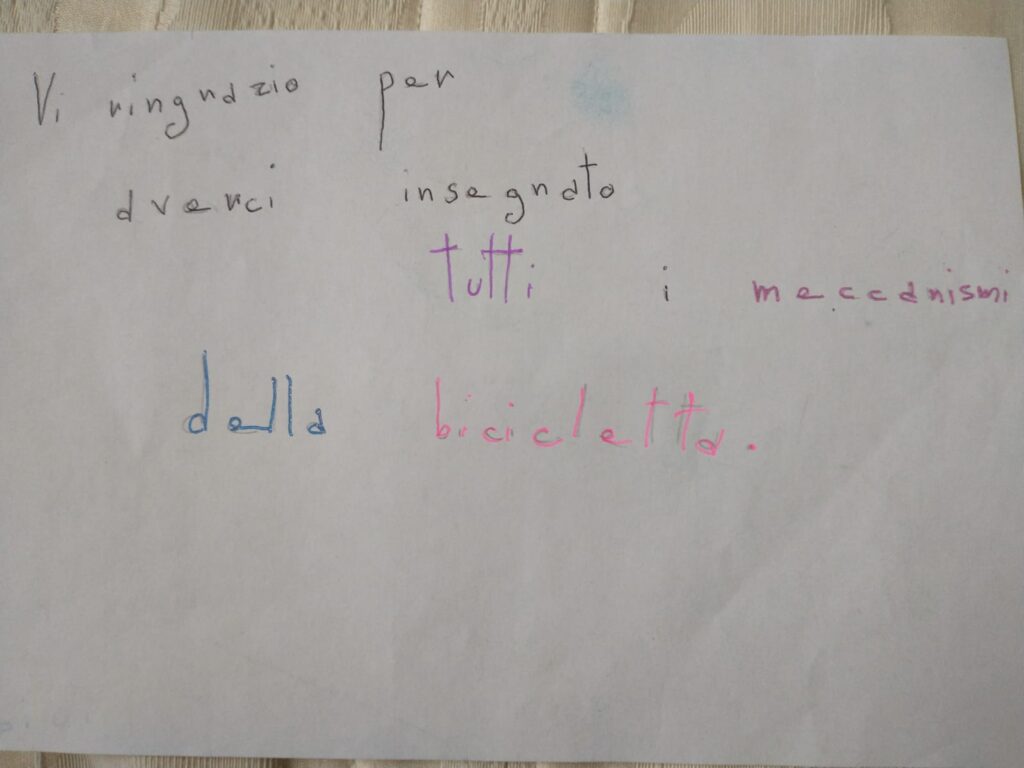 Vi ringrazio per
averci insegnato
tutti i meccanismi
della bicicletta.